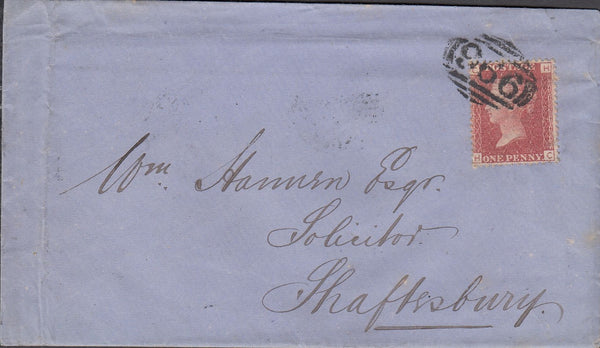 C POSTAGE H
H ONE PENNY C
Wm. Hannen Esqr.
Solicitor.
Shaftesbury.